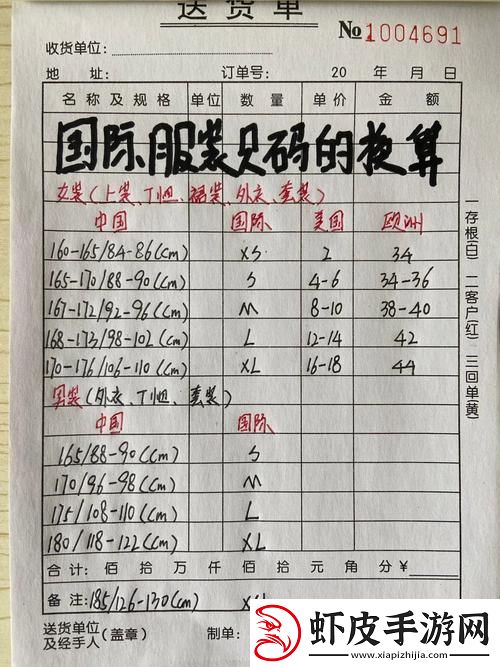 送货单
№1004691
收货单位:
地 址: 订单号: 20 年 月 日
名称及规格 单位 数量 单价 金额
国际服装尺码的换算
女装(上装、T恤、裙装、外衣、套装)
中国 国际 美国 欧洲
160-165/84-86(cm) XS 2 34
165-170/88-90(cm) S 4-6 34-36
167-172/92-96(cm) M 8-10 38-40
168-173/98-102(cm) L 12-14 42
170-176/106-110(cm) XL 16-18 44
男装(外衣、T恤、套装)
中国 国际
165/88-90(cm) S
170/96-98(cm) M
175/108-110(cm) L
180/118-122(cm) XL
合计: 佰 拾 万 仟 佰 拾 元 角 分 ¥
备注: 185/126-130(cm)
送货单位
及经手人(盖章) 制单:
一存根(白) 二客户(红) 三回单(黄)
虾皮手游网
www.xiapizhijia.com